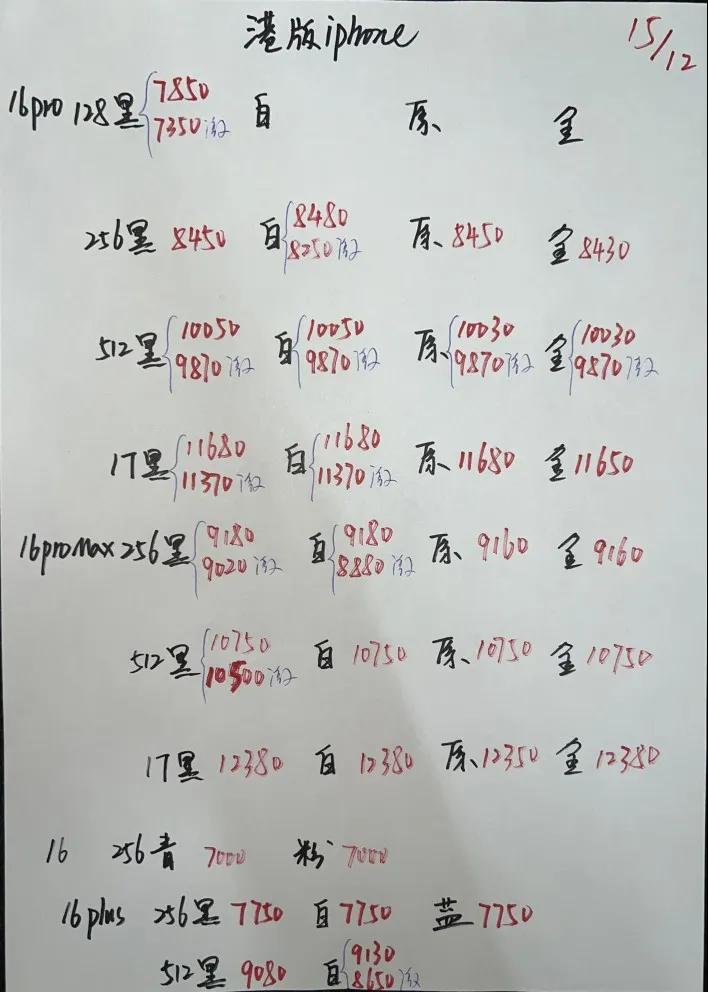 港版iphone 15/12
16pro 128黑 7850 白 原、 金
7350激
256黑 8450 白 8480 原、8450 金 8430
8250激
512黑 10050 白 10050 原、10030 金 10030
9870激 9870激 9870激 9870激
1T黑 11680 白 11680 原、11680 金 11650
11370激 11370激
16proMax 256黑 9180 白 9180 原、9160 金 9160
9020激 8880激
512黑 10750 白 10750 原、10750 金 10750
10500激
1T黑 12380 白 12380 原、12350 金 12380
16 256青 7000 粉 7000
16plus 256黑 7750 白 7750 蓝 7750
512黑 9080 白 9130
8650激